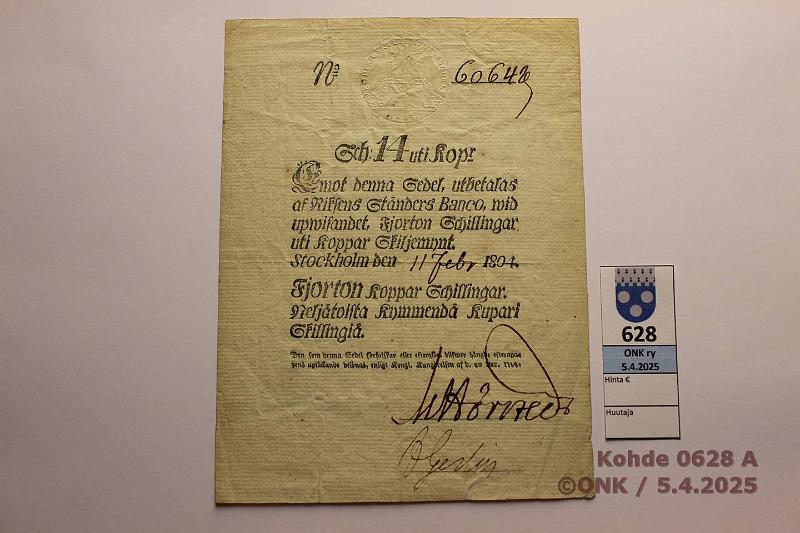 No 60648
Sch. 14 uti Kopr
Emot denna Sedel, utbetalas
af Riksens Ständers Banco, wid
upwisandet, Fjorton Schillingar
uti Koppar Skiljemynt.
Stockholm den 11 Febr 1804.
Fjorton Koppar Schillingar.
Neljätoista Kymmendä Kupari
Skillingiä.
Den som denna Sedel förfalskar eller efterapar, blifwer hängd
628
ONK ry
5.4.2025
Hinta €
Huutaja
Kohde 0628 A
©ONK / 5.4.2025